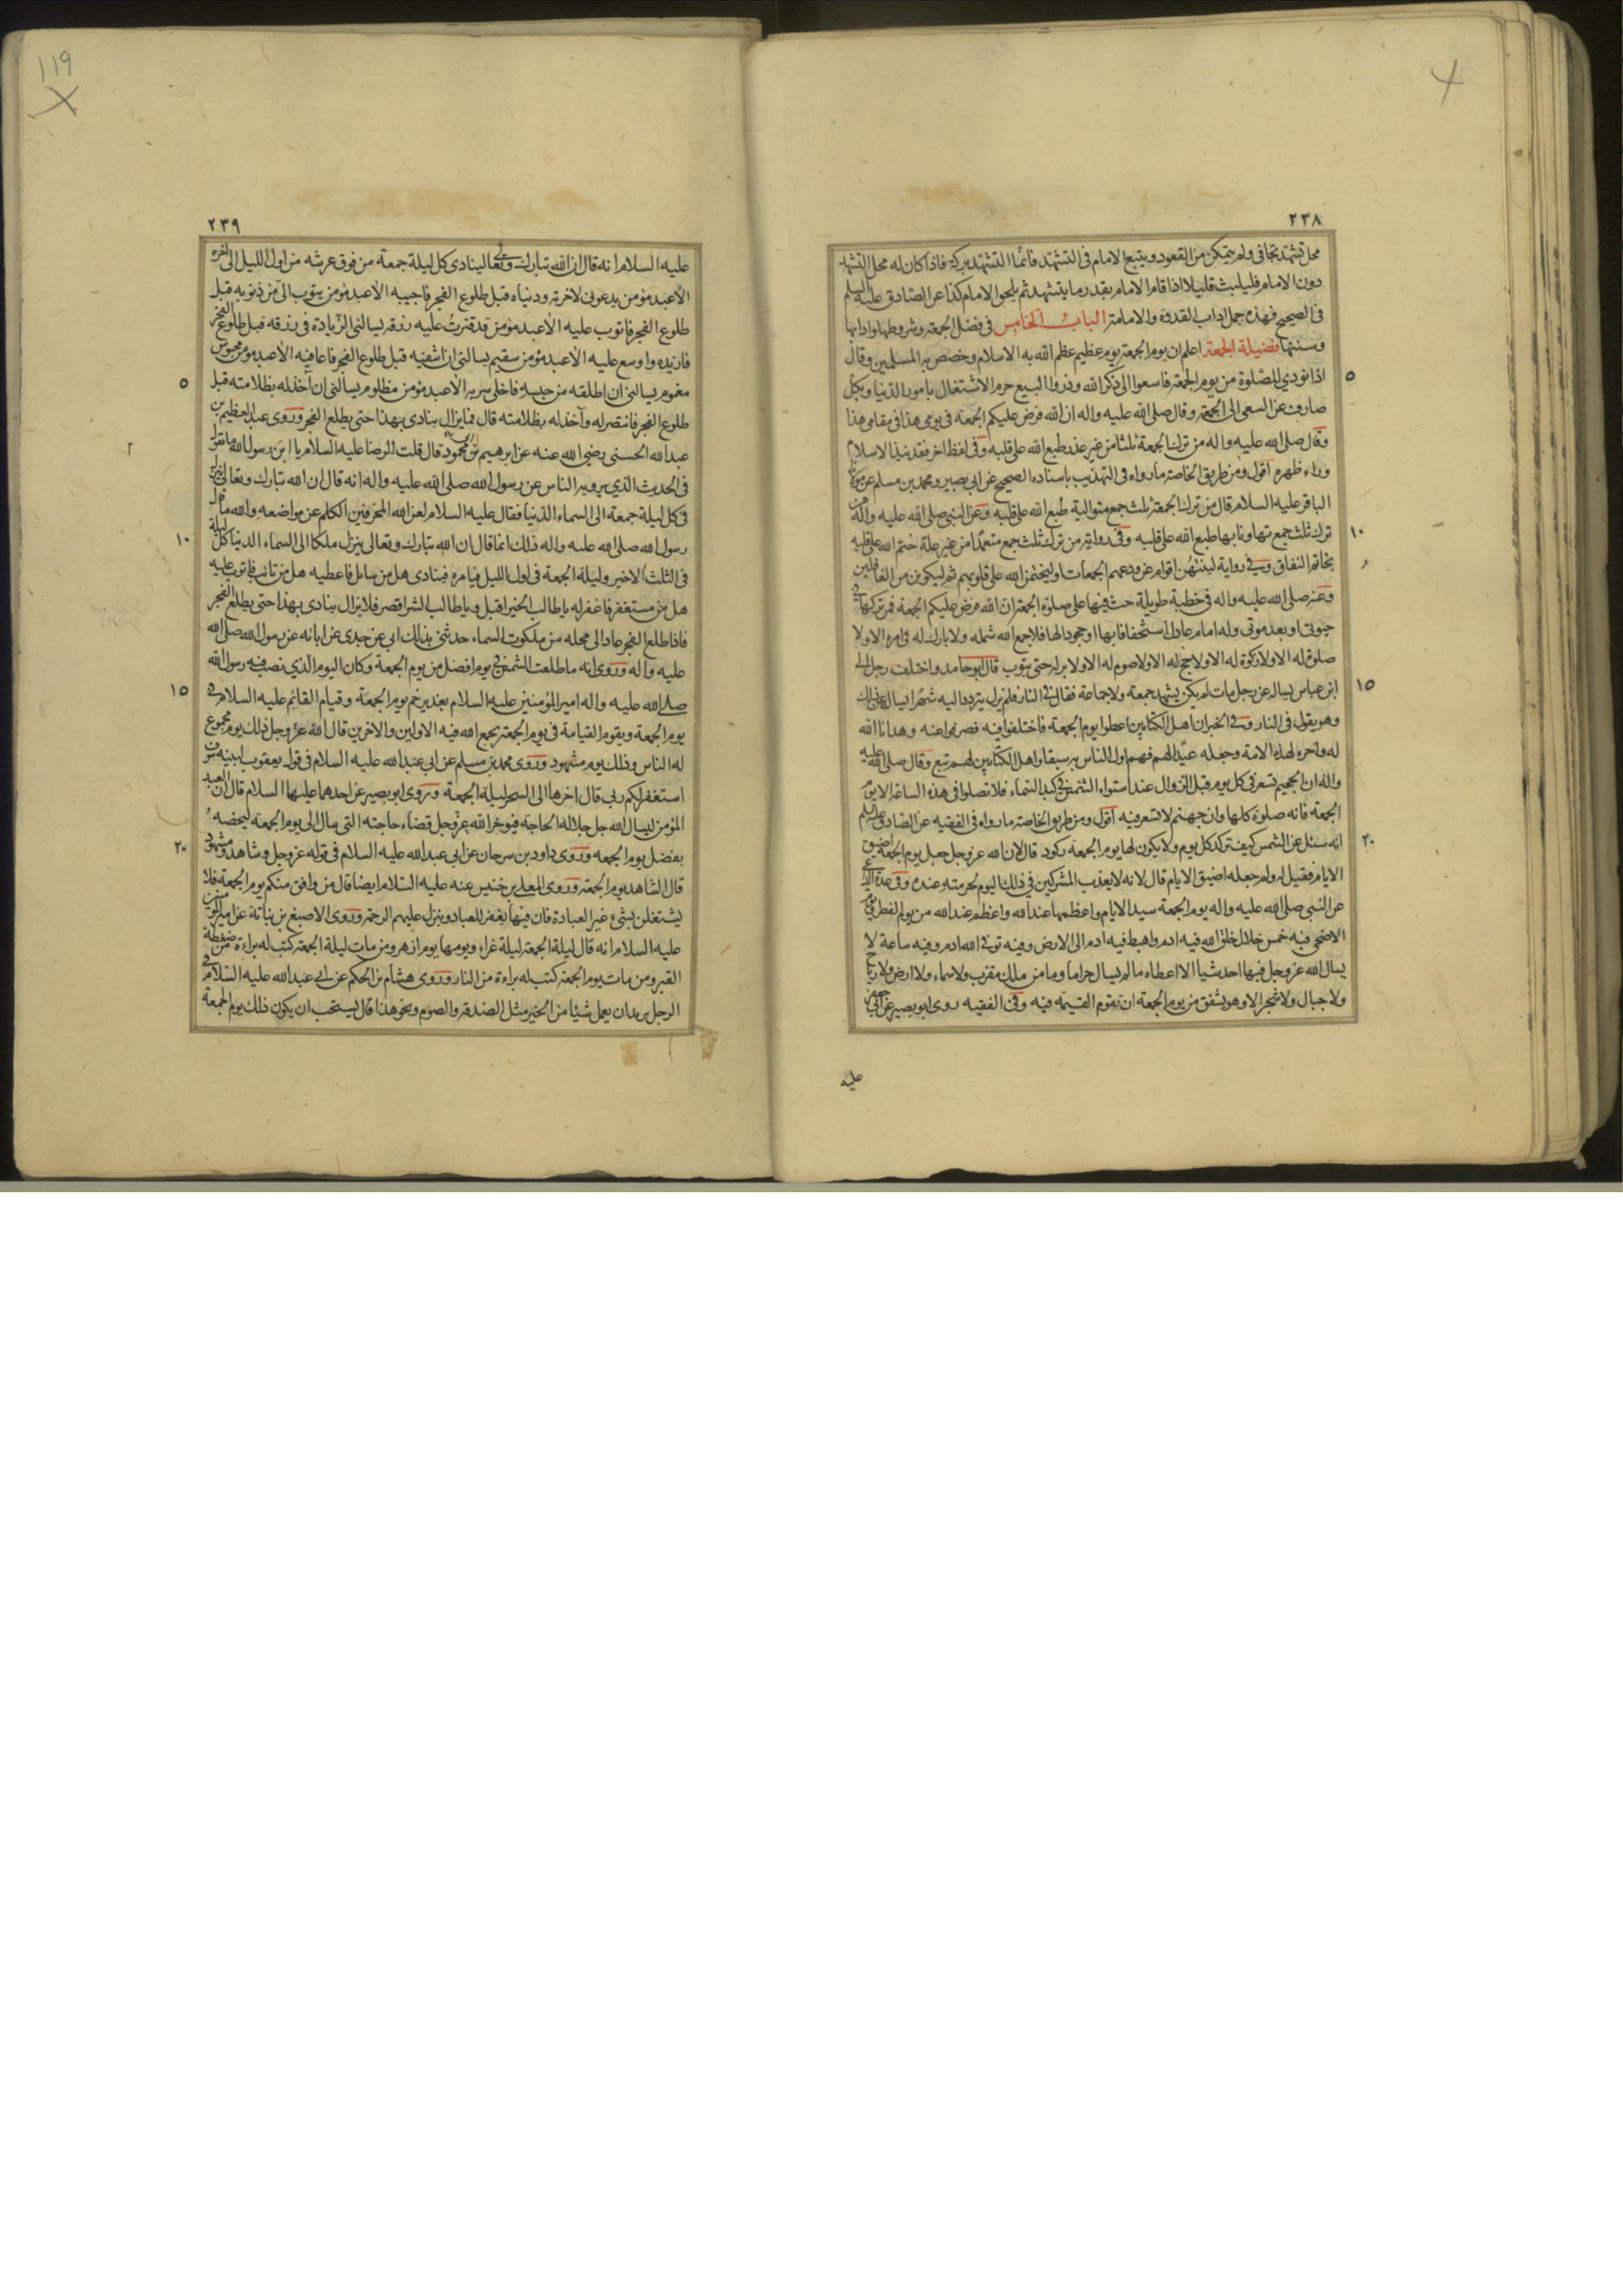 ٢٣٨
محل تشهد تجافى ولم يتمكن من القعود ويتبع الامام فى التشهد فانما التشهد بركة فاذا كان له محل التشهد
دون الامام فليلبث قليلا اذا قام الامام بقدر ما يتشهد ثم يلحق الامام كذا عن الصادق عليه السلم
فى الصحيح فهذه جمل اداب القدوة والامامة الباب الخامس فى فضل الجمعة وشروطها وادابها
وسننها فضيلة الجمعة اعلم ان يوم الجمعة يوم عظيم عظم الله به الاسلام وخصص به المسلمين وقال
٥
اذا نودي للصلوة من يوم الجمعة فاسعوا الى ذكر الله وذروا البيع حرم الاشتغال بامور الدنيا وبكل
صارف عن السعى الى الجمعة وقال صلى الله عليه واله ان الله فرض عليكم الجمعة فى يومى هذا فى مقامى هذا
وقال صلى الله عليه واله من ترك الجمعة ثلثا من غير عذر طبع الله على قلبه وفى لفظ اخر فقد نبذ الاسلام
وراء ظهره اقول ومن طريق الخاصة ما رواه فى التهذيب باسناده الصحيح عن ابى بصير ومحمد بن مسلم عن مولانا
الباقر عليه السلام قال من ترك الجمعة ثلث جمع متوالية طبع الله على قلبه وعن النبى صلى الله عليه واله من
١٠
ترك ثلث جمع تهاونا بها طبع الله على قلبه وفى رواية من ترك ثلث جمع متعمدا من غير علة ختم الله على قلبه
بخاتم النفاق وفى رواية لينتهن اقوام عن ودعهم الجمعات او ليختمن الله على قلوبهم ثم ليكونن من الغافلين
وعنه صلى الله عليه واله فى خطبة طويلة حث فيها على صلوة الجمعة ان الله فرض عليكم الجمعة فمن تركها فى
حيوتى او بعد موتى وله امام عادل استخفافا بها او جحودا لها فلا جمع الله شمله ولا بارك له فى امره الا ولا
صلوة له الا ولا زكوة له الا ولا حج له الا ولا صوم له الا ولا بر له حتى يتوب قال ابو حامد واختلف رجل الى
١٥
ابن عباس يساله عن رجل مات لم يكن يشهد جمعة ولا جماعة فقال فى النار فلم يزل يتردد اليه شهرا يساله عن ذلك
وهو يقول فى النار وفى الخبر ان اهل الكتابين اعطوا يوم الجمعة فاختلفوا فيه فصرفوا عنه وهدانا الله
له واخره لهذه الامة وجعله عيدا لهم فهم اولى الناس به سبقا واهل الكتابين لهم تبع وقال صلى الله عليه
واله ان الجحيم تسعر فى كل يوم قبل الزوال عند استواء الشمس فى كبد السماء فلا تصلوا فى هذه الساعة الا يوم
الجمعة فانه صلوة كلها وان جهنم لا تسعر فيه اقول ومن طريق الخاصة ما رواه فى الفقيه عن الصادق عليه السلم
٢٠
انه سئل عن الشمس كيف تركد كل يوم ولا يكون لها يوم الجمعة ركود قال لان الله عز وجل جعل يوم الجمعة اضيق
الايام فقيل له ولم جعله اضيق الايام قال لانه لا يعذب المشركين فى ذلك اليوم لحرمته عنده وفى عدة الداعى
عن النبى صلى الله عليه واله يوم الجمعة سيد الايام واعظمها عند الله واعظم عند الله من يوم الفطر ويوم
الاضحى فيه خمس خلال خلق الله فيه ادم واهبط فيه ادم الى الارض وفيه توفى الله ادم وفيه ساعة لا
يسال الله عز وجل فيها احد شيا الا اعطاه ما لم يسال حراما وما من ملك مقرب ولا سماء ولا ارض ولا رياح
ولا جبال ولا شجر الا وهو يشفق من يوم الجمعة ان تقوم القيمة فيه وفى الفقيه روى ابو بصير عن ابى جعفر
عليه
١١٩
٢٣٩
عليه السلام انه قال ان الله تبارك وتعالى لينادى كل ليلة جمعة من فوق عرشه من اول الليل الى اخره
الا عبد مؤمن يدعونى لاخرته ودنياه قبل طلوع الفجر فاجيبه الا عبد مؤمن يتوب الى من ذنوبه قبل
طلوع الفجر فاتوب عليه الا عبد مؤمن قد قترت عليه رزقه يسالنى الزيادة فى رزقه قبل طلوع الفجر
فازيده واوسع عليه الا عبد مؤمن سقيم يسالنى ان اشفيه قبل طلوع الفجر فاعافيه الا عبد مؤمن محبوس
٥
مغموم يسالنى ان اطلقه من حبسه فاخلى سربه الا عبد مؤمن مظلوم يسالنى ان آخذ له بظلامته قبل
طلوع الفجر فانتصر له وآخذ له بظلامته قال فما يزال ينادى بهذا حتى يطلع الفجر وروى عبد العظيم بن
٢
عبد الله الحسنى رضى الله عنه عن ابرهيم بن ابى محمود قال قلت للرضا عليه السلام يا ابن رسول الله ما تقول
فى الحديث الذي يرويه الناس عن رسول الله صلى الله عليه واله انه قال ان الله تبارك وتعالى ينزل
فى كل ليلة جمعة الى السماء الدنيا فقال عليه السلام لعن الله المحرفين الكلم عن مواضعه والله ما قال
١٠
رسول الله صلى الله عليه واله ذلك انما قال ان الله تبارك وتعالى ينزل ملكا الى السماء الدنيا كل ليلة
فى الثلث الاخير وليلة الجمعة فى اول الليل فيامره فينادى هل من سائل فاعطيه هل من تائب فاتوب عليه
هل من مستغفر فاغفر له يا طالب الخير اقبل ويا طالب الشر اقصر فلا يزال ينادى بهذا حتى يطلع الفجر
فاذا طلع الفجر عاد الى محله من ملكوت السماء حدثنى بذلك ابى عن جدى عن ابائه عن رسول الله صلى الله
عليه واله وروى انه ما طلعت الشمس فى يوم افضل من يوم الجمعة وكان اليوم الذي نصب فيه رسول الله
١٥
صلى الله عليه واله امير المؤمنين عليه السلام بغدير خم يوم الجمعة وقيام القائم عليه السلام فى
يوم الجمعة ويقوم القيامة فى يوم الجمعة يجمع الله فيه الاولين والاخرين قال الله عز وجل ذلك يوم مجموع
له الناس وذلك يوم مشهود وروى محمد بن مسلم عن ابى عبد الله عليه السلام فى قول يعقوب لبنيه سوف
استغفر لكم ربى قال اخرها الى السحر ليلة الجمعة وروى ابو بصير عن احدهما عليهما السلام قال ان العبد
المؤمن ليسال الله جل جلاله الحاجة فيؤخر الله عز وجل قضاء حاجته التى سال الى يوم الجمعة ليخصه
٢٠
بفضل يوم الجمعة وروى داود بن سرحان عن ابى عبد الله عليه السلام فى قوله عز وجل وشاهد ومشهود
قال الشاهد يوم الجمعة وروى المعلى بن خنيس عنه عليه السلام ايضا قال من وافق منكم يوم الجمعة فلا
يشتغلن بشىء غير العبادة فان فيها يغفر للعباد وينزل عليهم الرحمة وروى الاصبغ بن نباتة عن امير المؤمنين
عليه السلام انه قال ليلة الجمعة ليلة غراء ويومها يوم ازهر ومن مات ليلة الجمعة كتب له براءة من ضغطة
القبر ومن مات يوم الجمعة كتب له براءة من النار وروى هشام بن الحكم عن ابى عبد الله عليه السلام فى
الرجل يريد ان يعمل شيئا من الخير مثل الصدقة والصوم ونحو هذا قال يستحب ان يكون ذلك يوم الجمعة